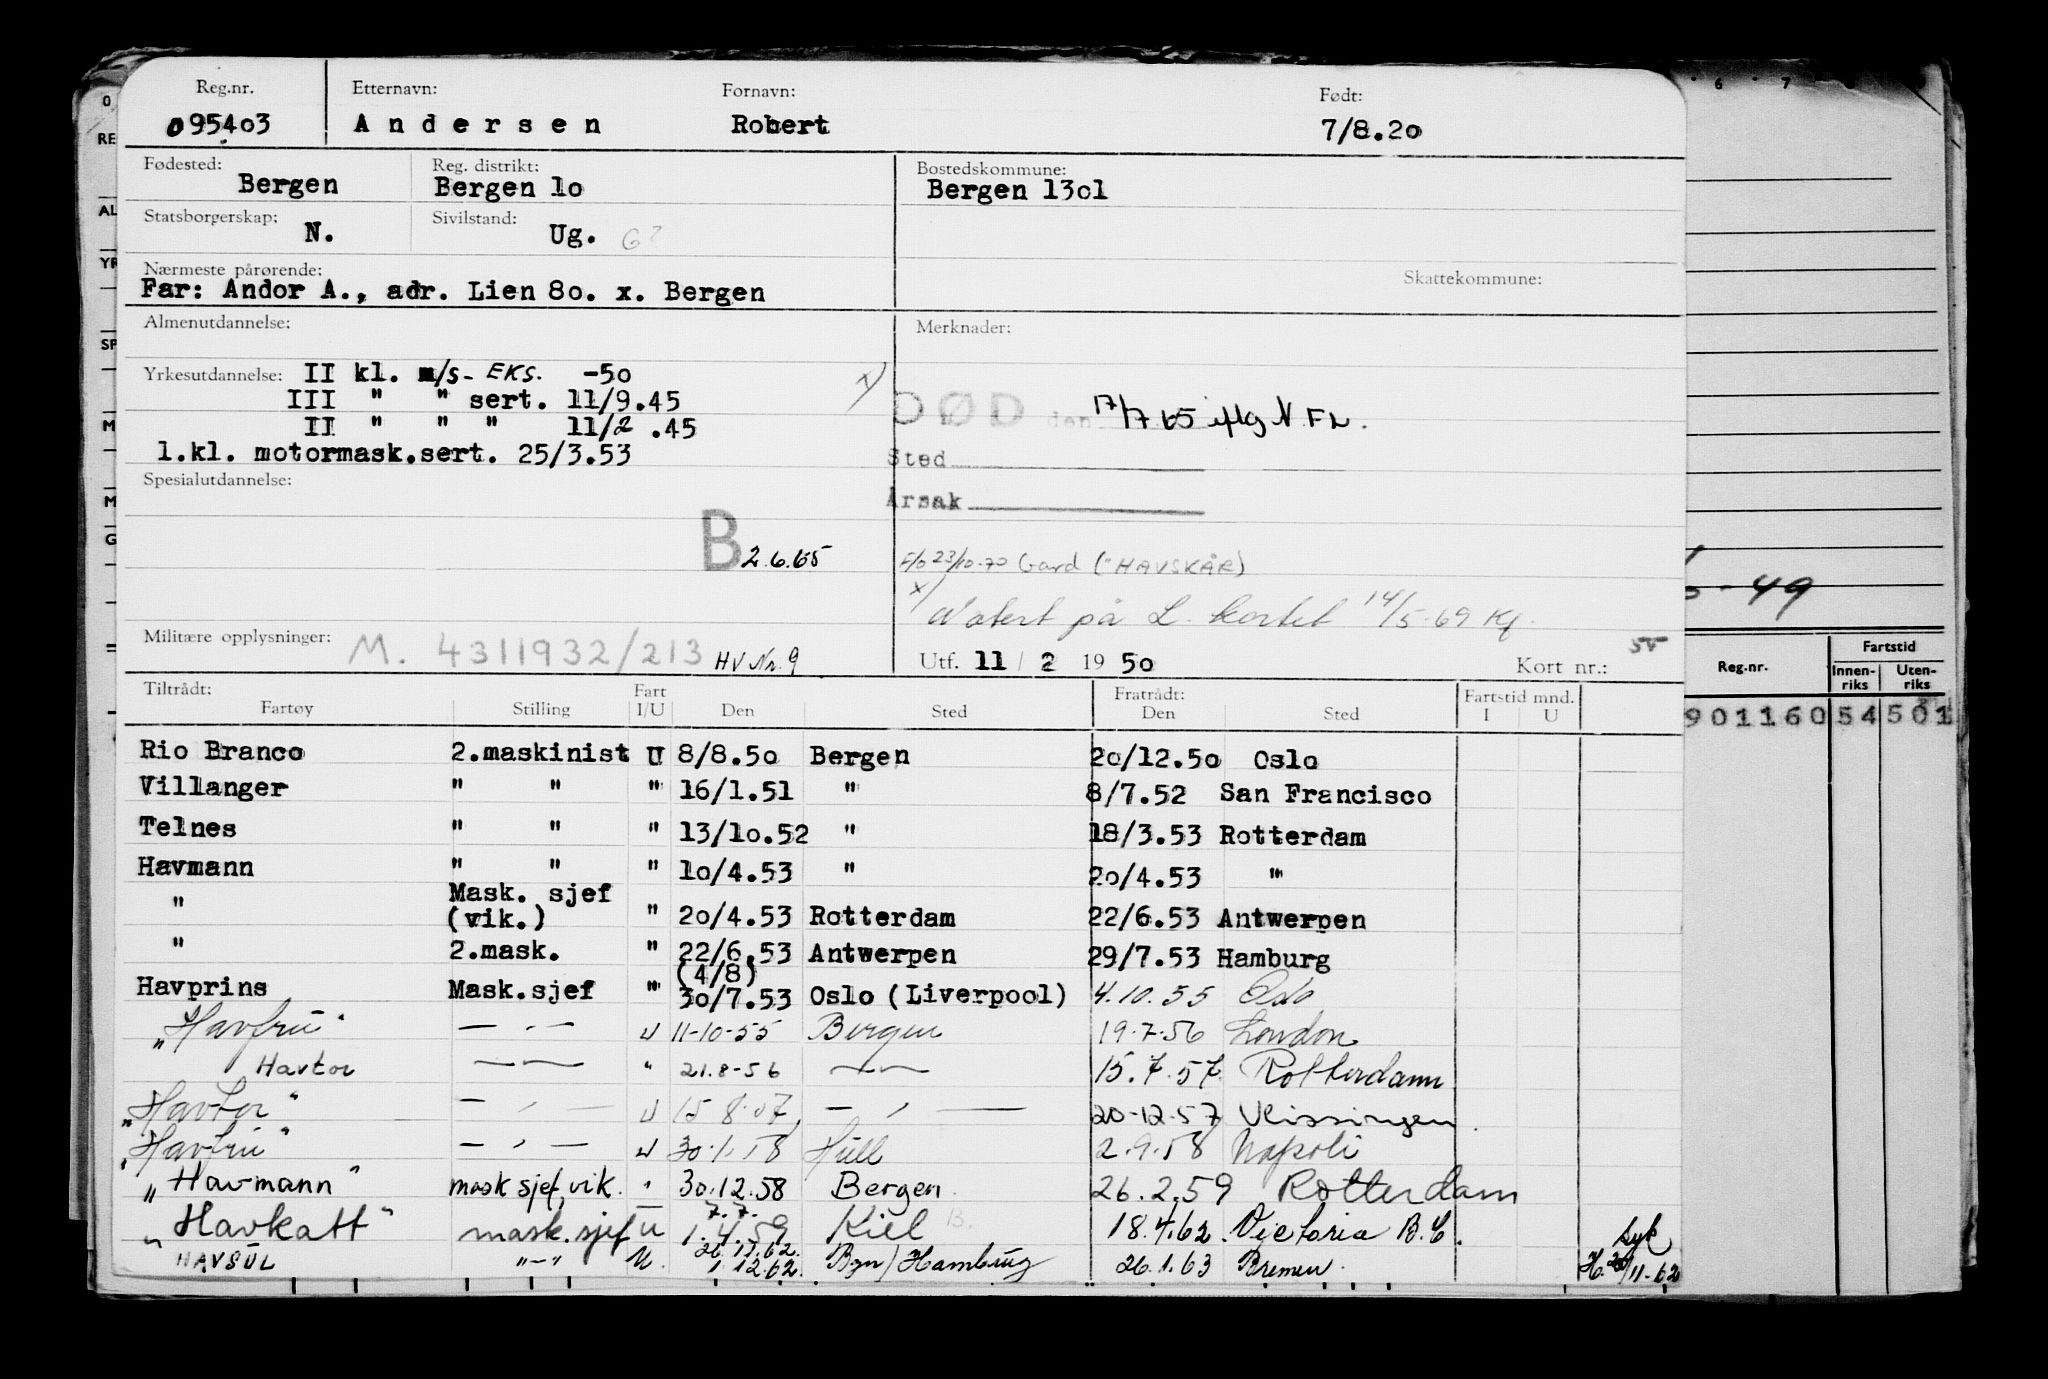 Reg.nr. Etternavn: Fornavn: Født:
095403 Andersen Robert 7/8.20
Fødested: Bergen Reg. distrikt: Bergen 10 Bostedskommune: Bergen 1301
Statsborgerskap: N. Sivilstand: Ug. G?
Nærmeste pårørende: Skattekommune:
Far: Andor A., adr. Lien 80. x. Bergen
Almenutdannelse: Merknader:
Yrkesutdannelse: II kl. m/s- EKS. -50 x)
III " " sert. 11/9.45
DØD den 17/7 65 iflg N.FL.
II " " " 11/2 .45
1.kl. motormask.sert. 25/3.53 Sted
Spesialutdannelse: Årsak
B 2.6.65 23/10-70 Gard ("HAVSKÅR)
x) Notert på L. kortet 14/5-69
Militære opplysninger: M. 4311932/213 HV Nr. 9 Utf. 11 / 2 19 50 Kort nr.:
Tiltrådt: Fart Fratrådt: Fartstid mnd.
Fartøy Stilling I/U Den Sted Den Sted I U
Rio Branco 2.maskinist U 8/8.50 Bergen 20/12.50 Oslo
Villanger " " " 16/1.51 " 8/7.52 San Francisco
Telnes " " " 13/10.52 " 18/3.53 Rotterdam
Havmann " " " 10/4.53 " 20/4.53 "
" Mask. sjef (vik.) " 20/4.53 Rotterdam 22/6.53 Antwerpen
" 2.mask. " 22/6.53 Antwerpen 29/7.53 Hamburg
Havprins Mask.sjef " (4/8) 30/7.53 Oslo (Liverpool) 4.10.55 Oslo
"Havfru" — " — U 11-10-55 Bergen 19.7.56 London
Havtor — " — " 21.8-56 — " — 15.7.57 Rotterdam
"Havtor" — " — U 15 8.57 — " — 20-12-57 Vlissingen
"Havfru" — " — U 30.1.58 Hull 2.9.58 Napoli
"Havmann" mask sjef, vik. " 30.12.58 Bergen 26.2.59 Rotterdam
"Havkatt" mask. sjef U 7.7. 1.4.59 Kiel B. 18.4.62. Victoria B.C.
HAVSUL "—" U. 26.11.62. 1.12.62. Bgn/Hamburg 26.1.63 Bremen. syk H. 20/11-62
6 7
O
RE
AL
YR
SP
M
M
G
-49
Reg.nr. Fartstid
Innen-riks Uten-riks
901160 54 501